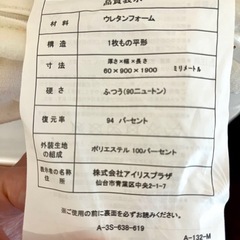 品質表示
材料 ウレタンフォーム
構造 1枚もの平形
寸法 厚さ×幅×長さ
60×900×1900 ミリメートル
硬さ ふつう(90ニュートン)
復元率 94 パーセント
外装生地の組成 ポリエステル 100パーセント
表示者の名称
住所 株式会社アイリスプラザ
仙台市青葉区中央2-1-7
※ご使用の前に裏面を必ずお読みください。
A-3S-638-619
A-132-M